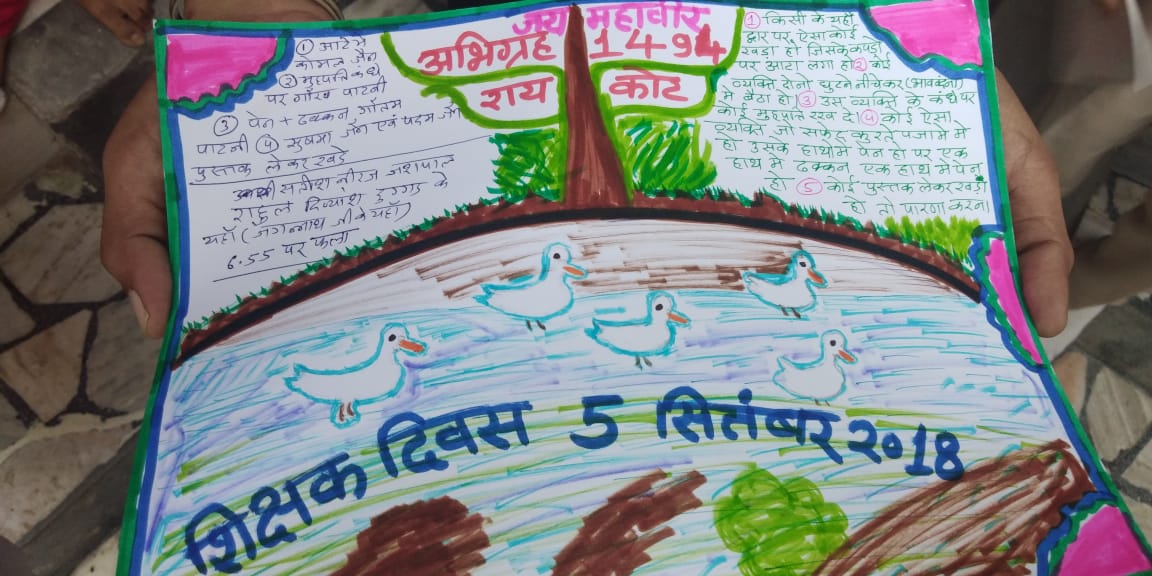 जय महावीर
अभिग्रह 1494
राय कोट
① आटे मे
कोमल जैन
② मुहपत्ति कंधे
पर गौरव पाटनी
③ पेन + ढक्कन गौतम
पाटनी ④ सुषमा जैन एवं पदम जैन
पुस्तक लेकर खड़े
सतीश नीरज जशपाल
राहुल दिव्यांश डुग्गड़ के
यहाँ (जगन्नाथ जी के यहाँ)
6.55 पर फला
① किसी के यहाँ
द्वार पर ऐसा कोई
खड़ा हो जिसके कपड़ो
पर आटा लगा हो ② कोई
व्यक्ति दोनो घुटने नीचे कर
में बैठा हो ③ उस व्यक्ति के कंधे पर
कोई मुहपत्ति रख दे ④ कोई ऐसा
व्यक्ति जो सफेद कुरते पजामे मे
हो उसक हाथोमे पेन हो पर एक
हाथ मे ढक्कन एक हाथ मे पेन
हो ⑤ कोई पुस्तक लेकर खड़ा
हो तो पारणा करना
शिक्षक दिवस 5 सितंबर २०18